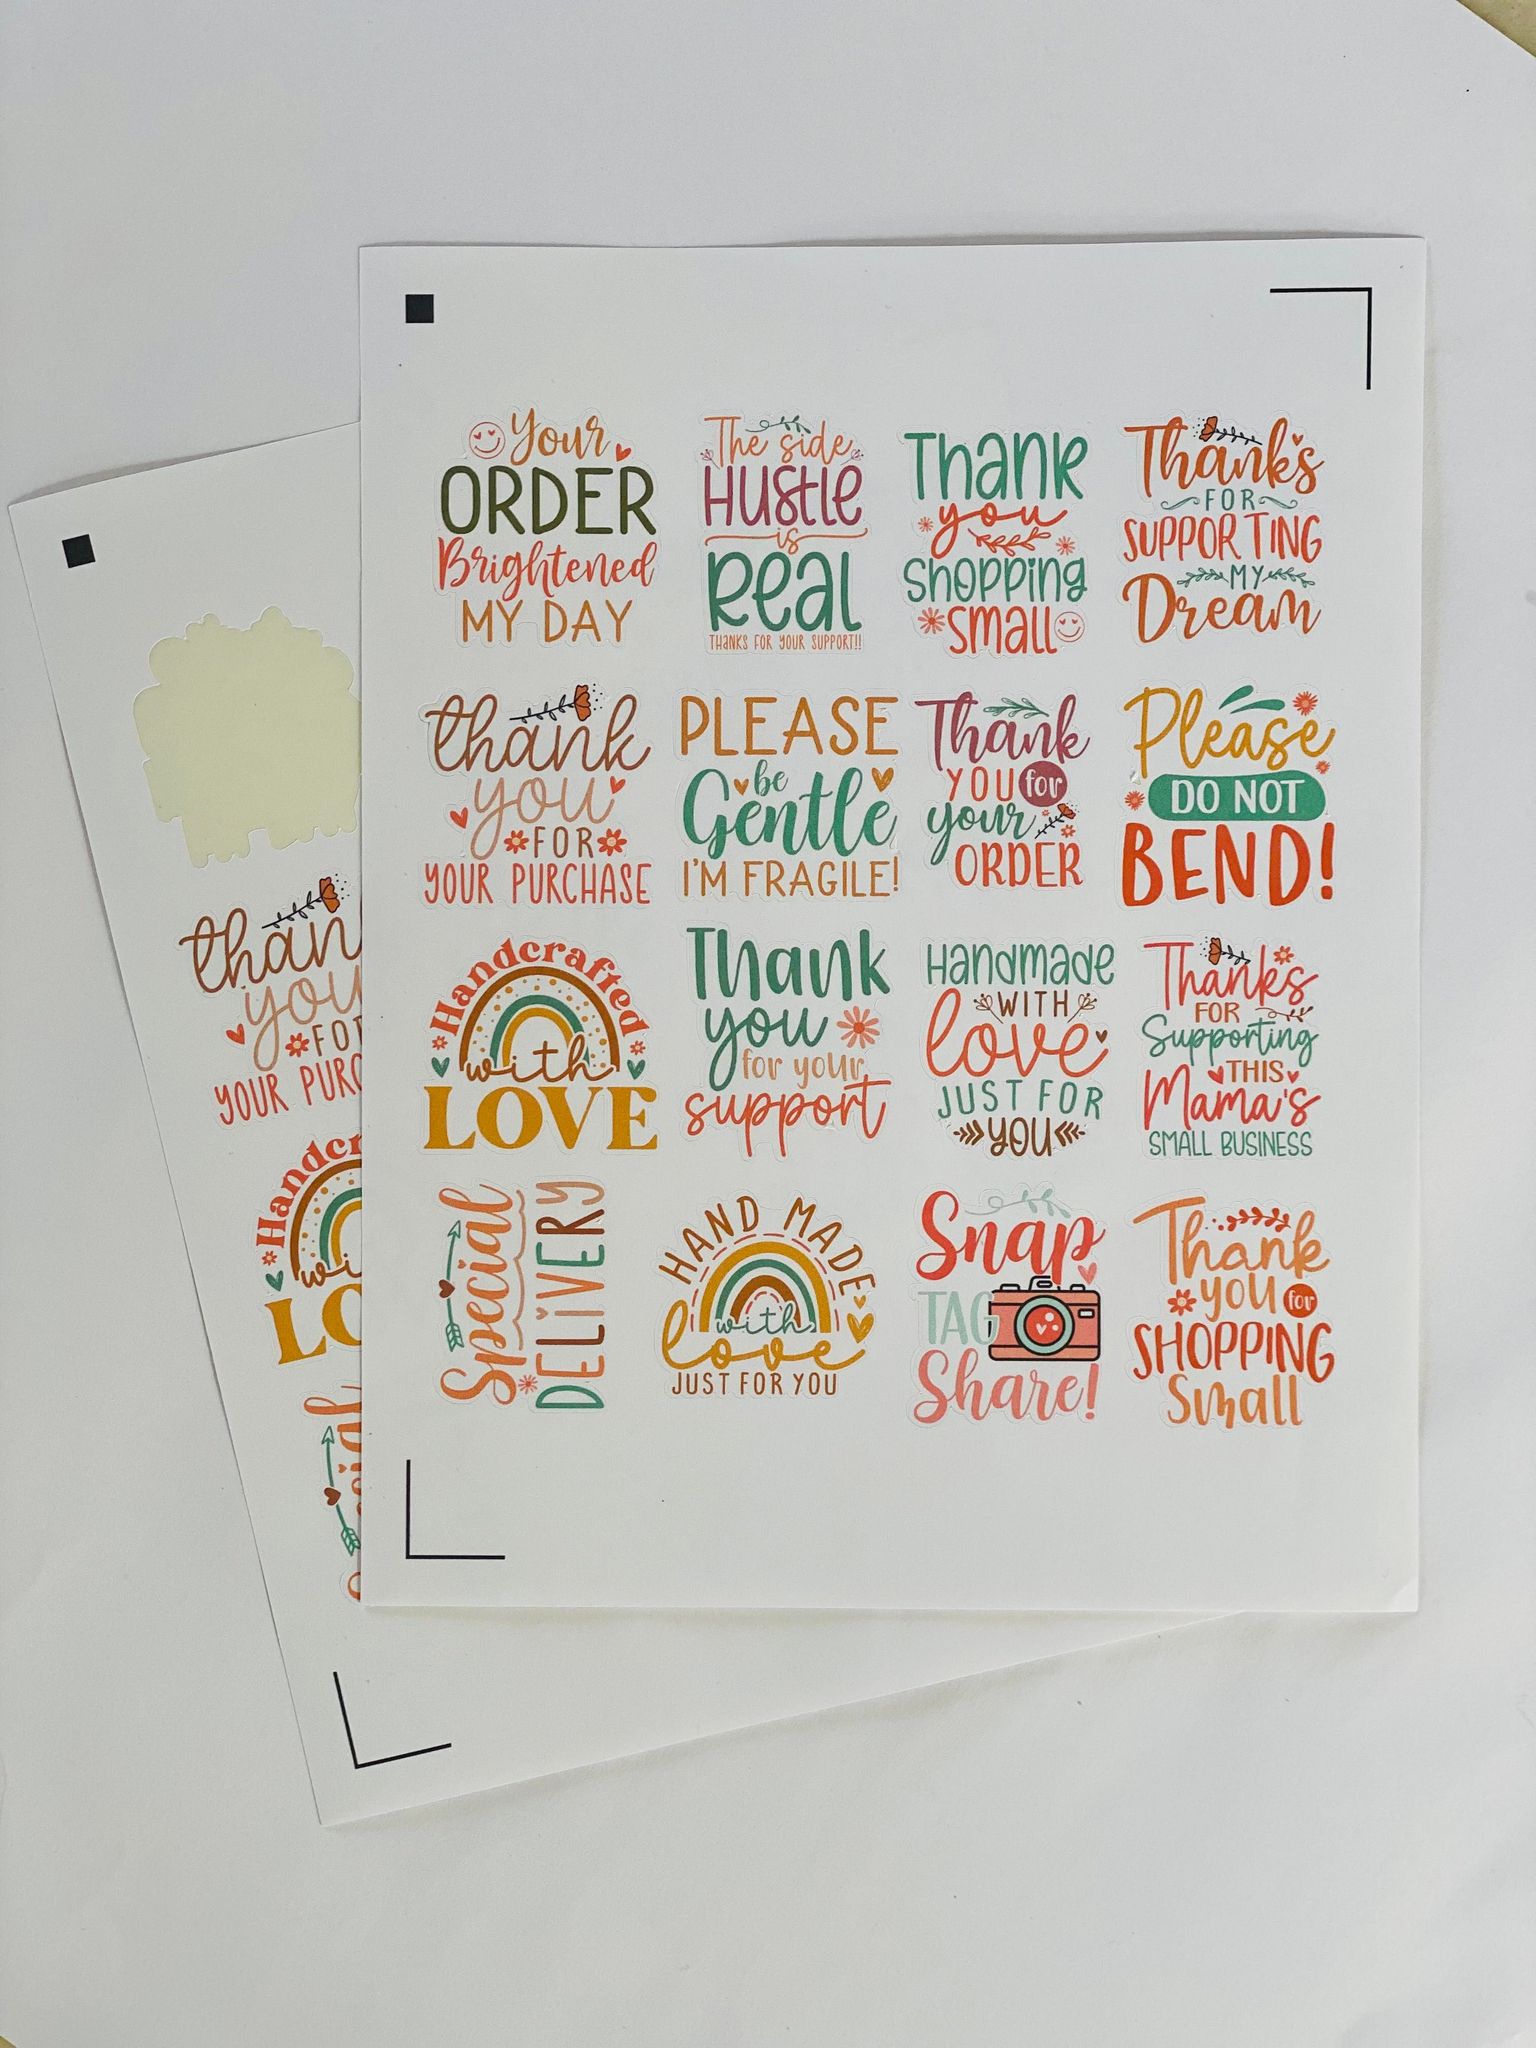 Your
ORDER
Brightened
MY DAY
The side
Hustle
is
Real
THANKS FOR YOUR SUPPORT!!
Thank
you
Shopping
small
Thanks
FOR
SUPPORTING
MY
Dream
thank
you
FOR
YOUR PURCHASE
PLEASE
be
Gentle
I'M FRAGILE!
Thank
YOU for
your
ORDER
Please
DO NOT
BEND!
Handcrafted
with
LOVE
Thank
you
for your
support
Handmade
WITH
love
JUST FOR
YOU
Thanks
FOR
Supporting
THIS
Mama's
SMALL BUSINESS
Special
DELIVERY
HAND MADE
with
love
JUST FOR YOU
Snap
TAG
Share!
Thank
you for
SHOPPING
Small
than
you
FO
YOUR PURC
Handcr
wi
LO